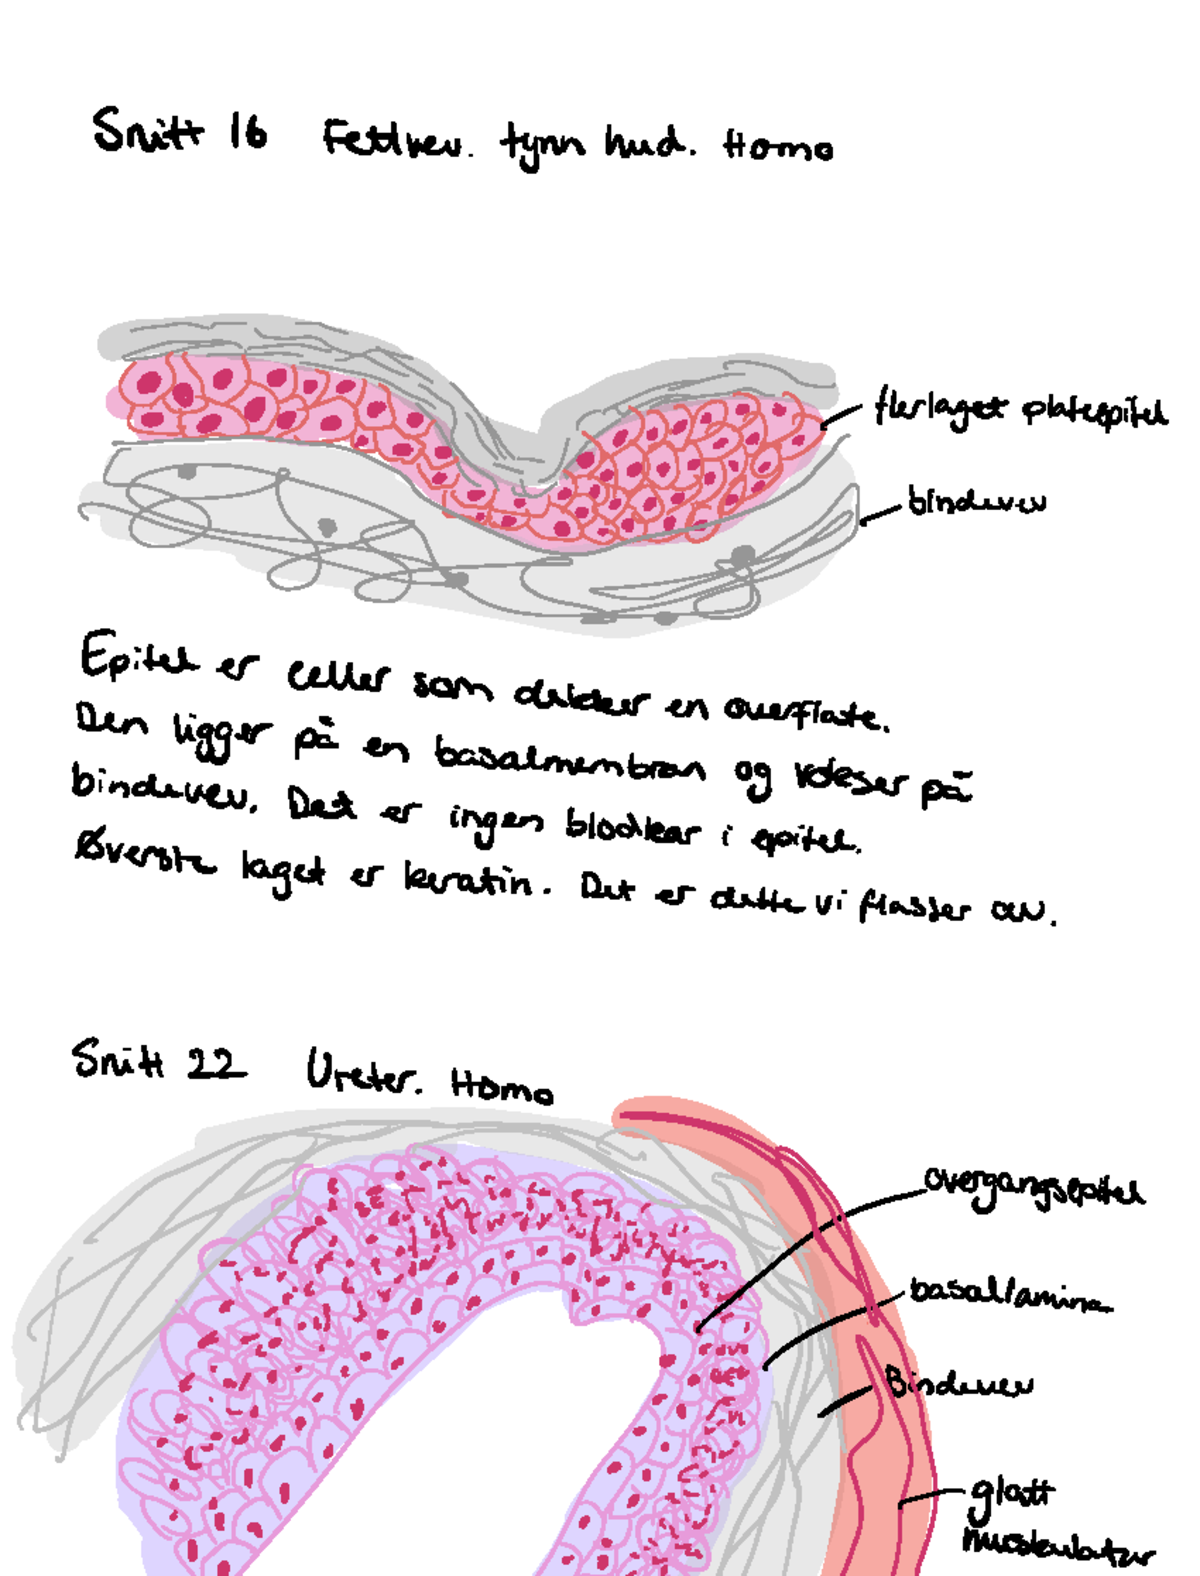 Snitt 16 Fettvev. tynn hud. Homo
flerlaget plateepitel
bindevev
Epitel er celler som dekker en overflate.
Den ligger på en basalmembran og vokser på
bindevev. Det er ingen blodkar i epitel.
Øverste laget er keratin. Det er dette vi flasser av.
Snitt 22 Ureter. Homo
overgangsepitel
basallamina
Bindevev
glatt
muskulatur